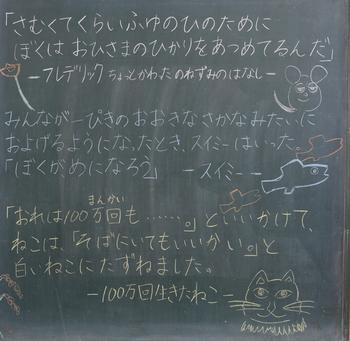 「さむくてくらいふゆのひのために
ぼくは おひさまのひかりをあつめてるんだ」
ーフレデリック ちょっとかわったのねずみのはなしー
みんながーぴきのおおきなさかなみたいに
およげるようになったとき、スイミーはいった。
「ぼくがめになろう」 ースイミーー
「おれは100万回も……。」といいかけて、
まんかい
ねこは、「そばにいてもいいかい。」と
白いねこにたずねました。
ー100万回生きたねこー